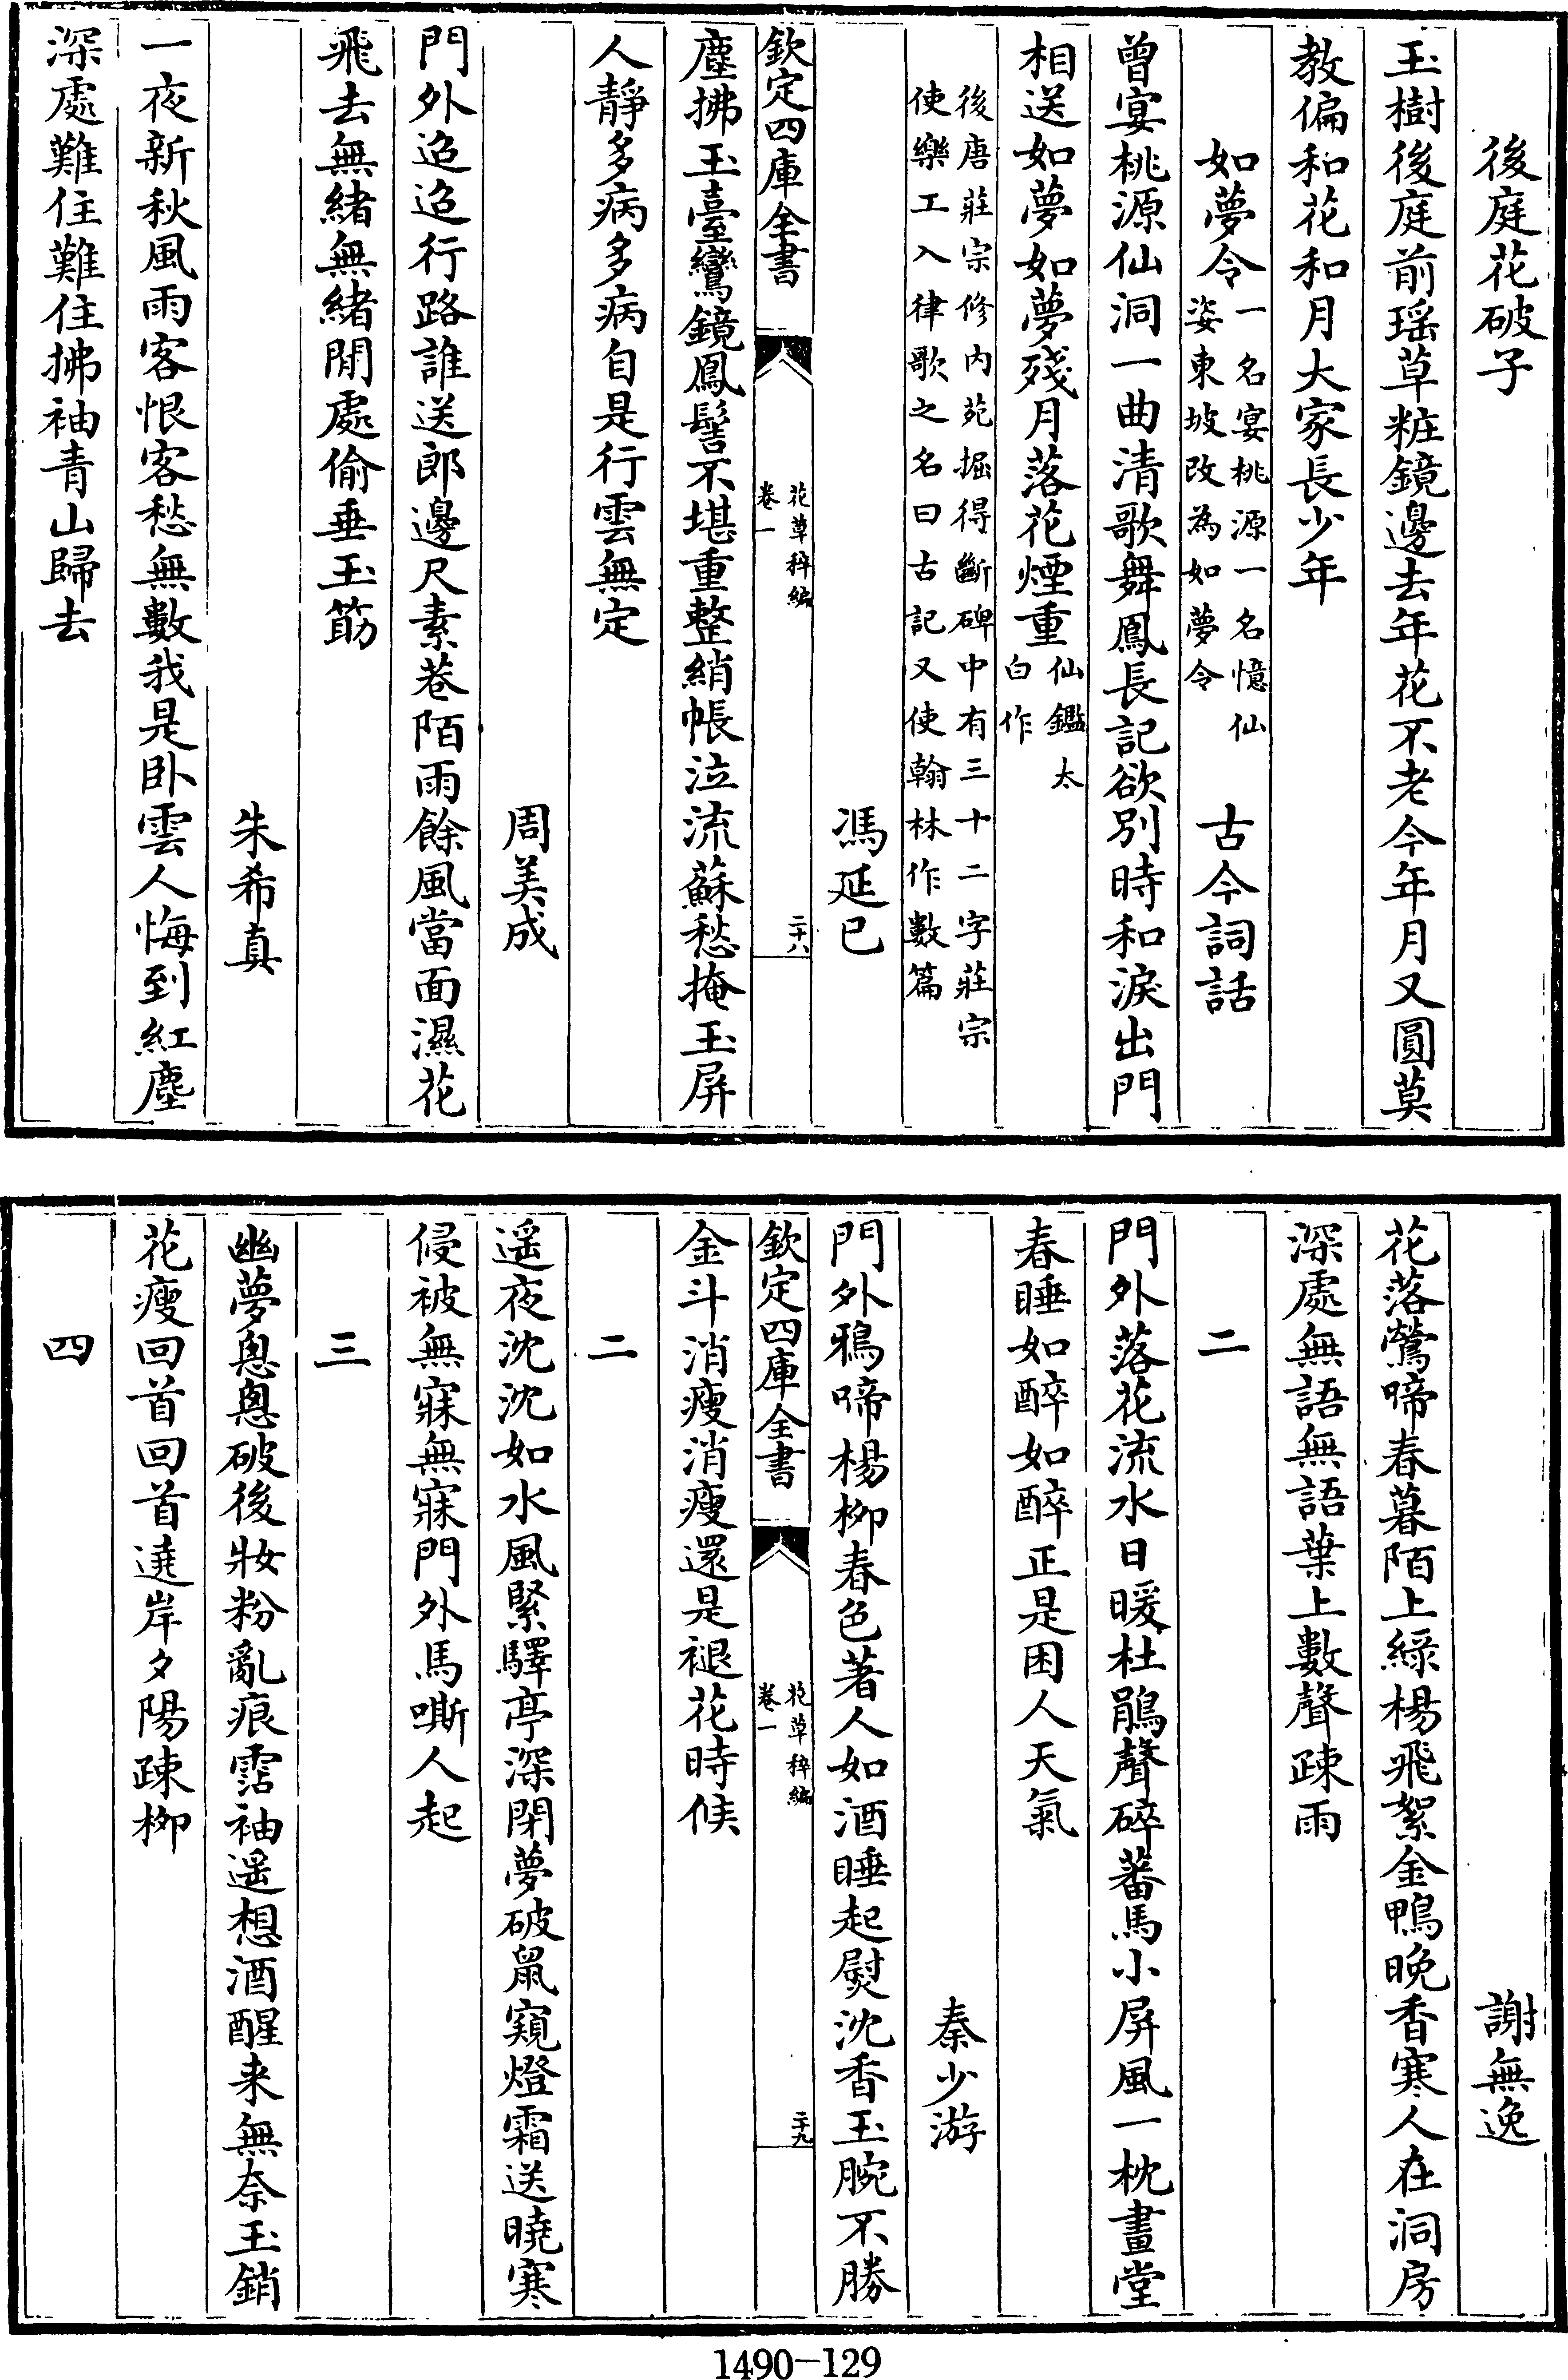 後庭花破子
玉樹後庭前瑶草粧鏡邊去年花不老今年月又圓莫
教偏和花和月大家長少年
如夢令一名宴桃源一名憶仙姿東坡改為如夢令 古今詞話
曾宴桃源仙洞一曲清歌舞鳳長記欲別時和淚出門
相送如夢如夢殘月落花煙重仙鑑太白作
後唐莊宗修内苑掘得斷碑中有三十二字莊宗
使樂工入律歌之名曰古記又使翰林作數篇
馮延已
欽定四庫全書 花草稡編 卷一 二十八
塵拂玉臺鸞鏡鳳髻不堪重整綃帳泣流蘇愁掩玉屏
人靜多病多病自是行雲無定
周美成
門外迢迢行路誰送郎邊尺素巷陌雨餘風當面濕花
飛去無緒無緒閒處偷垂玉筯
朱希真
一夜新秋風雨客恨客愁無數我是卧雲人悔到紅塵
深處難住難住拂袖青山歸去
謝無逸
花落鶯啼春暮陌上綠楊飛絮金鴨晚香寒人在洞房
深處無語無語葉上數聲疎雨
二
門外落花流水日暖杜鵑聲碎蕃馬小屏風一枕畫堂
春睡如醉如醉正是困人天氣
秦少游
門外鴉啼楊柳春色著人如酒睡起熨沈香玉腕不勝
欽定四庫全書 花草稡編 卷一 二十九
金斗消瘦消瘦還是褪花時候
二
遥夜沈沈如水風緊驛亭深閉夢破鼠窺燈霜送曉寒
侵被無寐無寐門外馬嘶人起
三
幽夢悤悤破後妝粉亂痕霑袖遥想酒醒来無奈玉銷
花瘦回首回首遶岸夕陽疎柳
四
1490-129